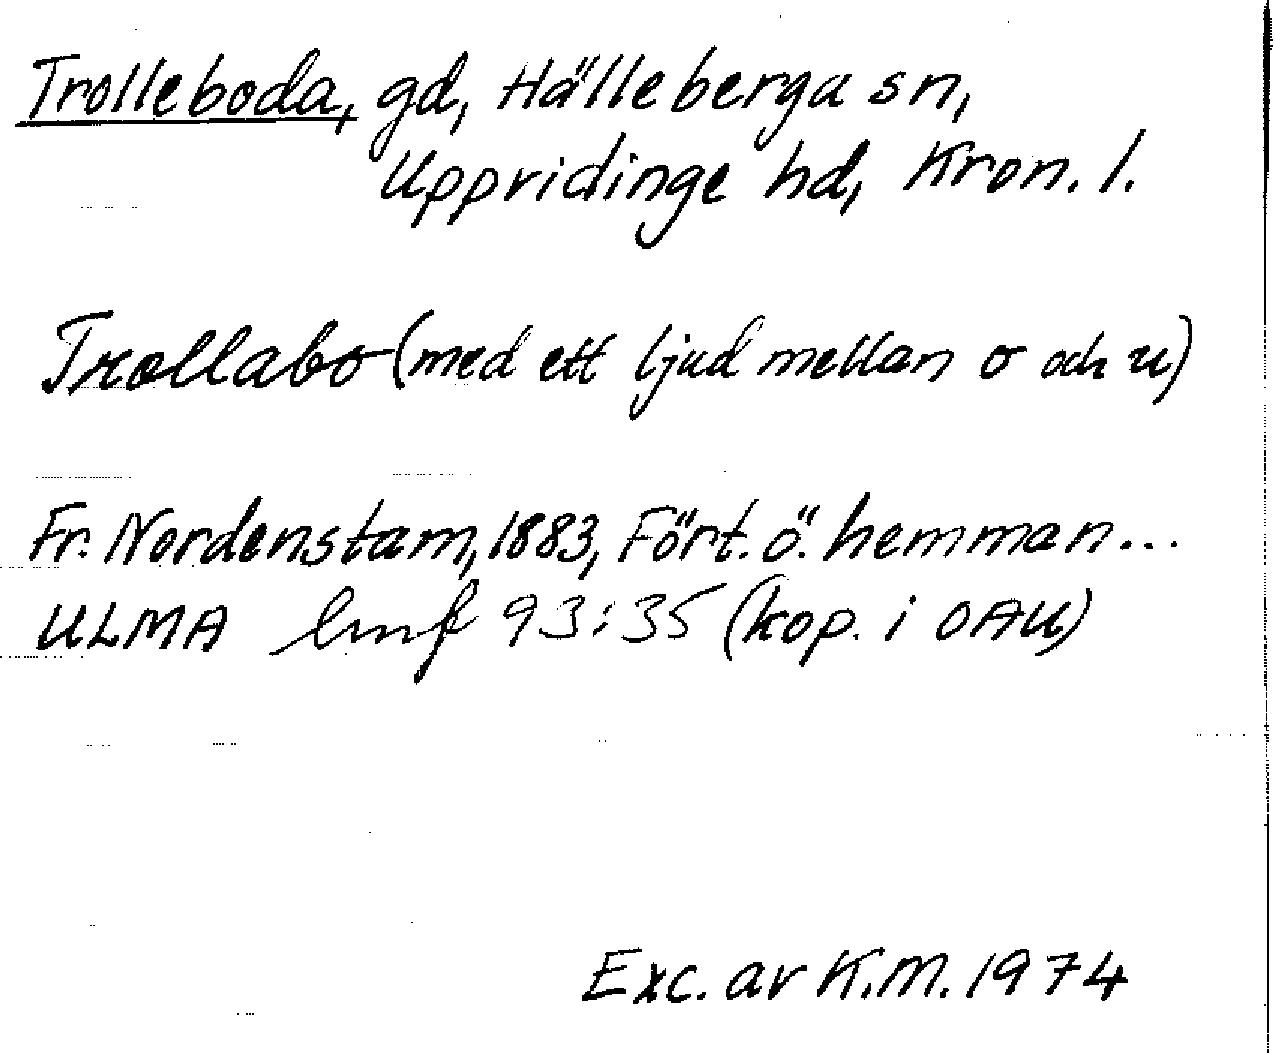 Trolleboda, gd, Hälleberga sn,
Uppvidinge hd, Kron. l.
Trollabo (med ett ljud mellan o och u)
Fr. Nordenstam, 1883, Fört. ö. hemman...
ULMA lmf 93:35 (kop. i OAU)
Exc. av K.M. 1974